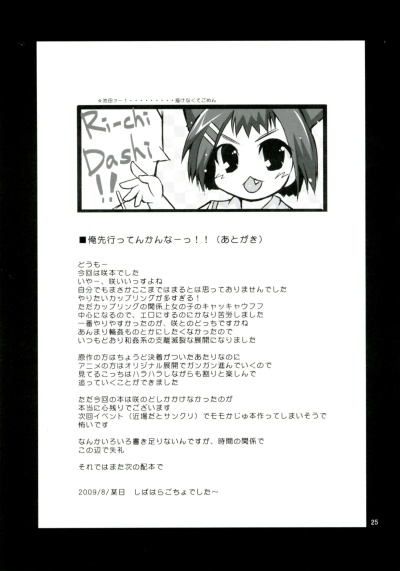 ※池田ァー！・・・・・・・・・描けなくてごめん
Ri-chi
Dashi
!!
■俺先行ってんかんなーっ！！（あとがき）
どうもー
今回は咲本でした
いやー、咲いいっすよね
自分でもまさかここまではまるとは思っておりませんでした
やりたいカップリングが多すぎる！
ただカップリングの関係上女の子のキャッキャウフフ
中心になるので、エロにするのにかなり苦労しました
一番やりやすかったのが、咲とのどっちですかね
あんまり輪姦ものとかにしたくなかったので
いつもどおり和姦系の支離滅裂な展開になりました
原作の方はちょうど決着がついたあたりなのに
アニメの方はオリジナル展開でガンガン進んでいくので
見てるこっちはハラハラしながらも割りと楽しんで
追っていくことができました
ただ今回の本は咲のどしかかけなかったのが
本当に心残りでございます
次回イベント（近場だとサンクリ）でモモかじゅ本作ってしまいそうで
怖いです
なんかいろいろ書き足りないんですが、時間の関係で
この辺で失礼
それではまた次の配本で
2009/8/某日　しばはらごちょでした～
25